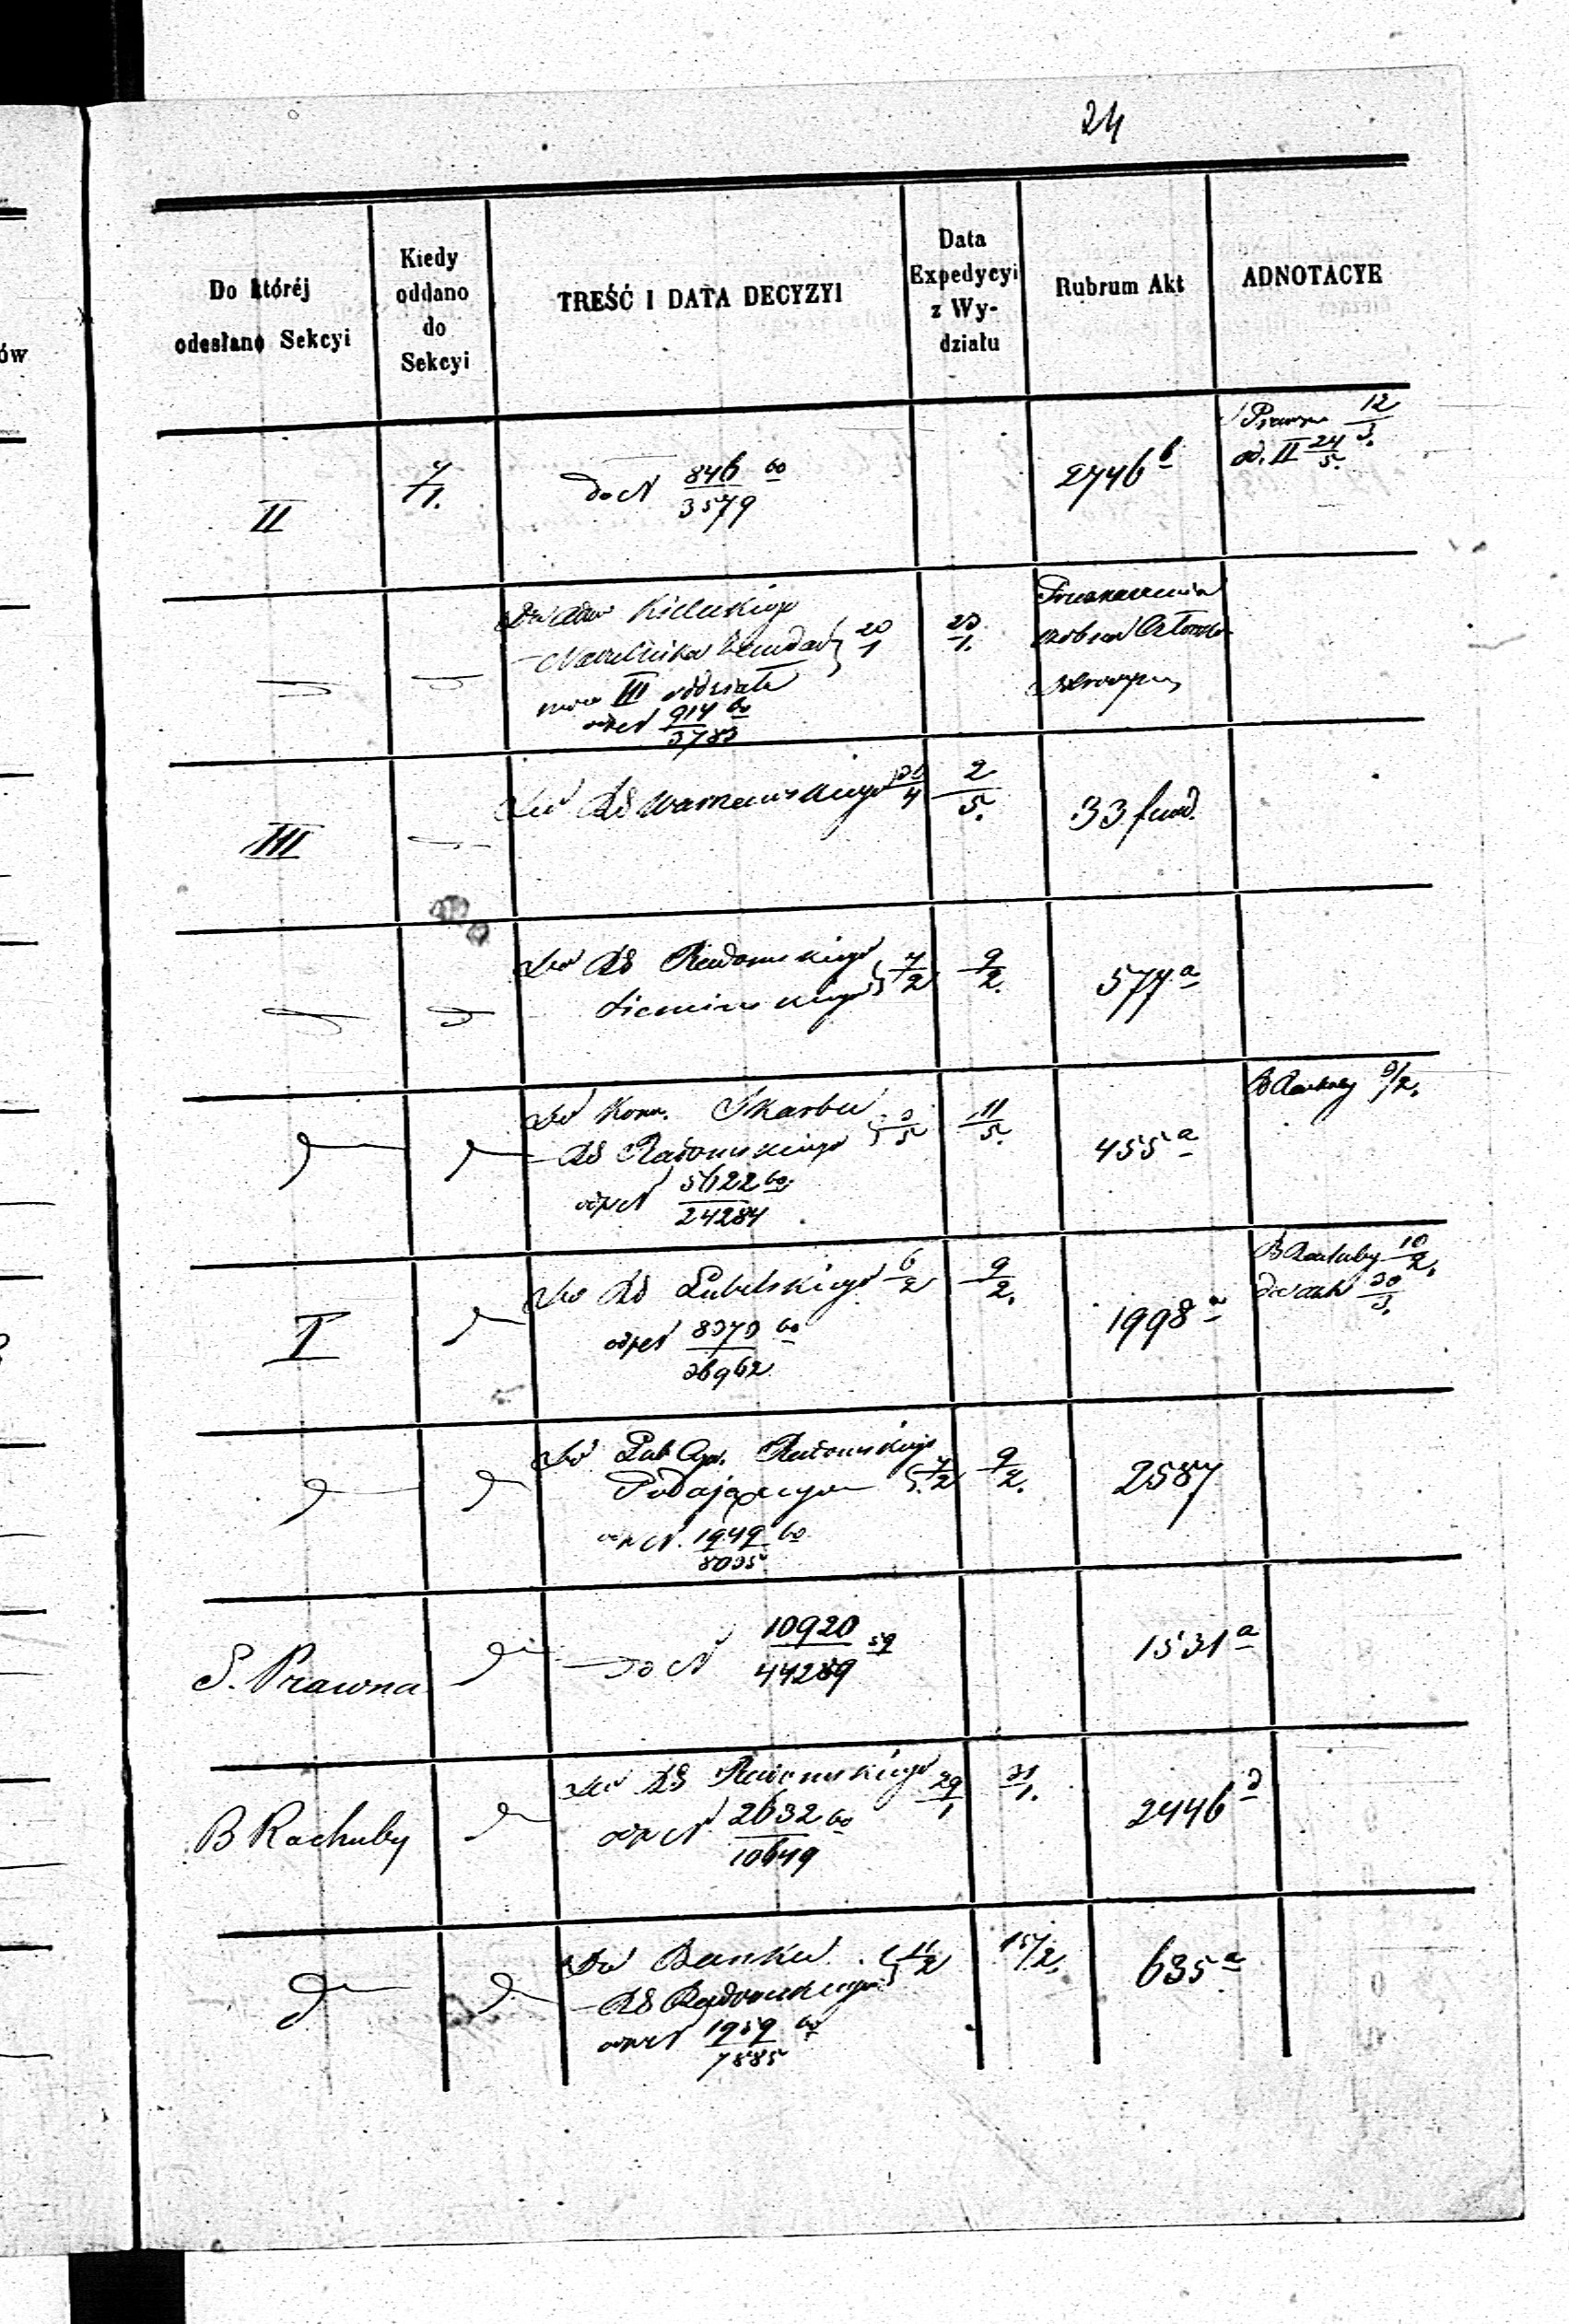 24
Do któréj
odesłano Sekcyi
Kiedy
oddano
do
Sekcyi
TREŚĆ I DATA DECYZYI
Data
Expedycyi
z Wy-
działu
Rubrum Akt
ADNOTACYE
ów
II
7/1.
do N 846/3579 60
2746 b
S Prawna 12/3.
od. II 24/5.
Kieleckiego
Naczelnika 20/1
23/1.
III oddziału
od N 914/3783 60
III
Do DS Warszawskiego 30/4
2/5.
33 fund.
Do DS Radomskiego 7/2
9/2.
577 a
Do Kom. Skarbu
DS Radomskiego
11/5.
od N 5622/24284 60
455 a
B Rachuby 9/2.
I
Do DS Lubelskiego 6/2
9/2.
od N 8379/36962 60
1998 a
B Rachuby 10/2.
Do Radomskiego
Podającego 7/2
9/2.
od N. 1949/8035 60
2587
S. Prawna
do N 10920/44289 59
1531 a
B Rachuby
Do DS Radomskiego 29/1
31/1.
od N 2632/10649 60
2446 d
Do Banku
15/2.
DS Radomskiego
od N 1959/7885 60
635 a